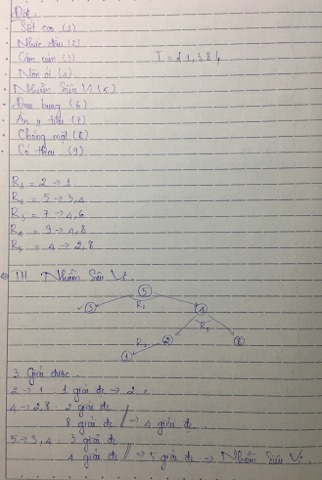 Đặt:
Sốt cao (1)
Nhức đầu (2)
Cảm cúm (3)
I = {1,3,8}
Nôn ói (4)
Nhiễm Siêu Vi (5)
Đau bụng (6)
Ăn tiêu (7)
Chóng mặt (8)
Có thai (9)
R1 = 2 → 1
R2 = 5 → 3,4
R3 = 7 → 4,6
R4 = 9 → 4,8
R5 = 4 → 2,8
TH Nhiễm Siêu Vi.
5
3 R2 4
R5
R1 2 8
1
3 Giải được
2 → 1 : 1 giải đc → 2
4 → 2,8 : 2 giải đc
8 giải đc → 4 giải đc
5 → 3,4 : 3 giải đc
4 giải đc → 5 giải đc → Nhiễm Siêu Vi.